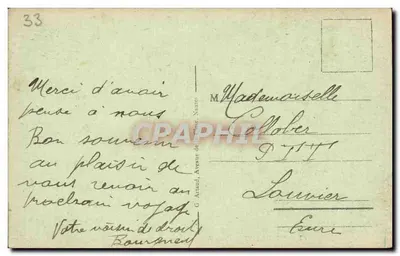 33
Merci d'avoir
pensé à nous
Bon souvenir
au plaisir de
vous revoir au
prochain voyage
Votre voisin de droite
M Mademoiselle
Collober
P T T
Louvier
Eure
CRAPHIT